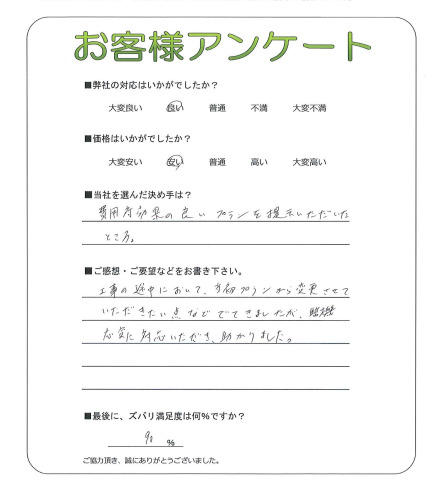 お客様アンケート
■弊社の対応はいかがでしたか？
大変良い 良い 普通 不満 大変不満
■価格はいかがでしたか？
大変安い 安い 普通 高い 大変高い
■当社を選んだ決め手は？
費用対効果の良いプランを提示いただいた
ところ。
■ご感想・ご要望などをお書き下さい。
工事の途中において、当初プランから変更させて
いただきたい点などでてきましたが、臨機
応変に対応いただき、助かりました。
■最後に、ズバリ満足度は何％ですか？
90 ％
ご協力頂き、誠にありがとうございました。